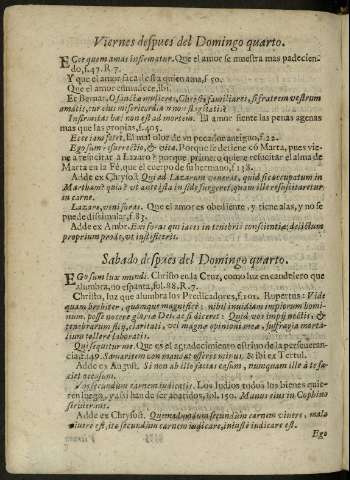 Viernes despues del Domingo quarto.
ECce quem amas infirmatur. Que el amor se muestra mas padecien-
do, f.47. R.7.
Y que el amor saca de sta quien ama, f.50.
Que el amor enmudece, ibi.
Et Bernar. O sanctæ mulieres, Christi familiares, si fratrem vestrum
amatis, cur eius misericordia
Infirmitas hæc non est ad mortem. El amor siente las penas agenas
mas que las propias, f.405.
Ecce iam fætet. El mal olor de vn pecador antiguo, f.22.
Ego sum resurrectio, & vita. Porque se detiene cõ Marta, pues vie-
ne a resucitar a Lazaro? porque primero quiere resucitar el alma de
Marta en la Fè, que el cuerpo de su hermano, f.138.
Adde ex Chrysost. Qui ad Lazarum venerat, quid sic occupatum in
Martham? quia vt ante ista in fide surgeret, quam ille resuscitaretur
in carne.
Lazare, veni foras. Que el amor es obediente, y tiene alas, y no se
puede dissimular, f.83.
Adde ex Ambr. Exi foras qui iaces in tenebris conscientiæ; delictum
proprium prode, vt iustificeris.
Sabado despues del Domingo quarto.
EGo sum lux mundi. Christo en la Cruz, como luz en candelero que
alumbra, no espanta, fol.88. R.7.
Christo, luz que alumbra los Predicadores, f.101. Rupertus: Vide
quam breuiter, quamque magnificè; nihil inuidiam impiorum homi-
num, posse nocere gloriæ Dei, ac si diceret: Quid vos impij noctis, &
tenebrarum filij, claritati, vel magnæ opinioni meæ, suffragia morta-
lium tollere laboratis.
Qui sequitur me. Que es el agradecimiento estribo de la perseueran-
cia, f.149. Samaritem con manaut offeres minus. & ibi ex Tertul.
Adde ex August. Si non ab illo factus es sum, nunquam ille à te fa-
ciet occasum.
Vos secundum carnem iudicatis. Los Iudios todos los bienes quie-
ren luego, y assi han de ser abatidos, fol.150. Manus eius in Cophino
seruierunt.
Adde ex Chrysost. Quemadmodum secundum carnem viuere, malè
viuere est, ita secundum carnem iudicare, iniustè iudicare est.
Ego